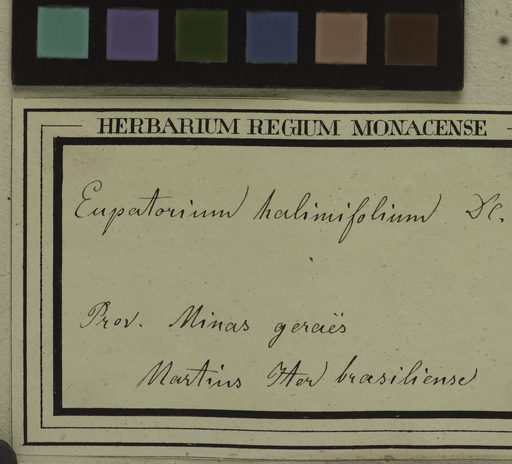 HERBARIUM REGIUM MONACENSE
Eupatorium halimifolium DC.
Prov. Minas geraës
Martius Iter brasiliense